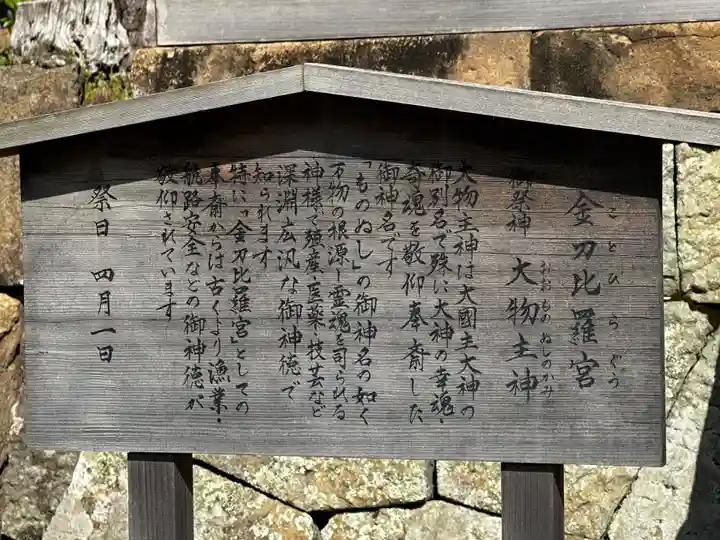 金刀比羅宮
ことひらぐう
御祭神 大物主神
おおものぬしのかみ
大物主神は大國主大神の
御別名で殊に大神の幸魂・
奇魂を敬仰奉齋した
御神名です
「ものぬし」の御神名の如く
万物の根源-霊魂を司られる
神様で殖産・医薬・技芸など
深淵広汎な御神徳で
知られます
特に「金刀比羅宮」としての
奉齋からは古くより漁業・
航路安全などの御神徳が
敬仰されています
祭日 四月一日